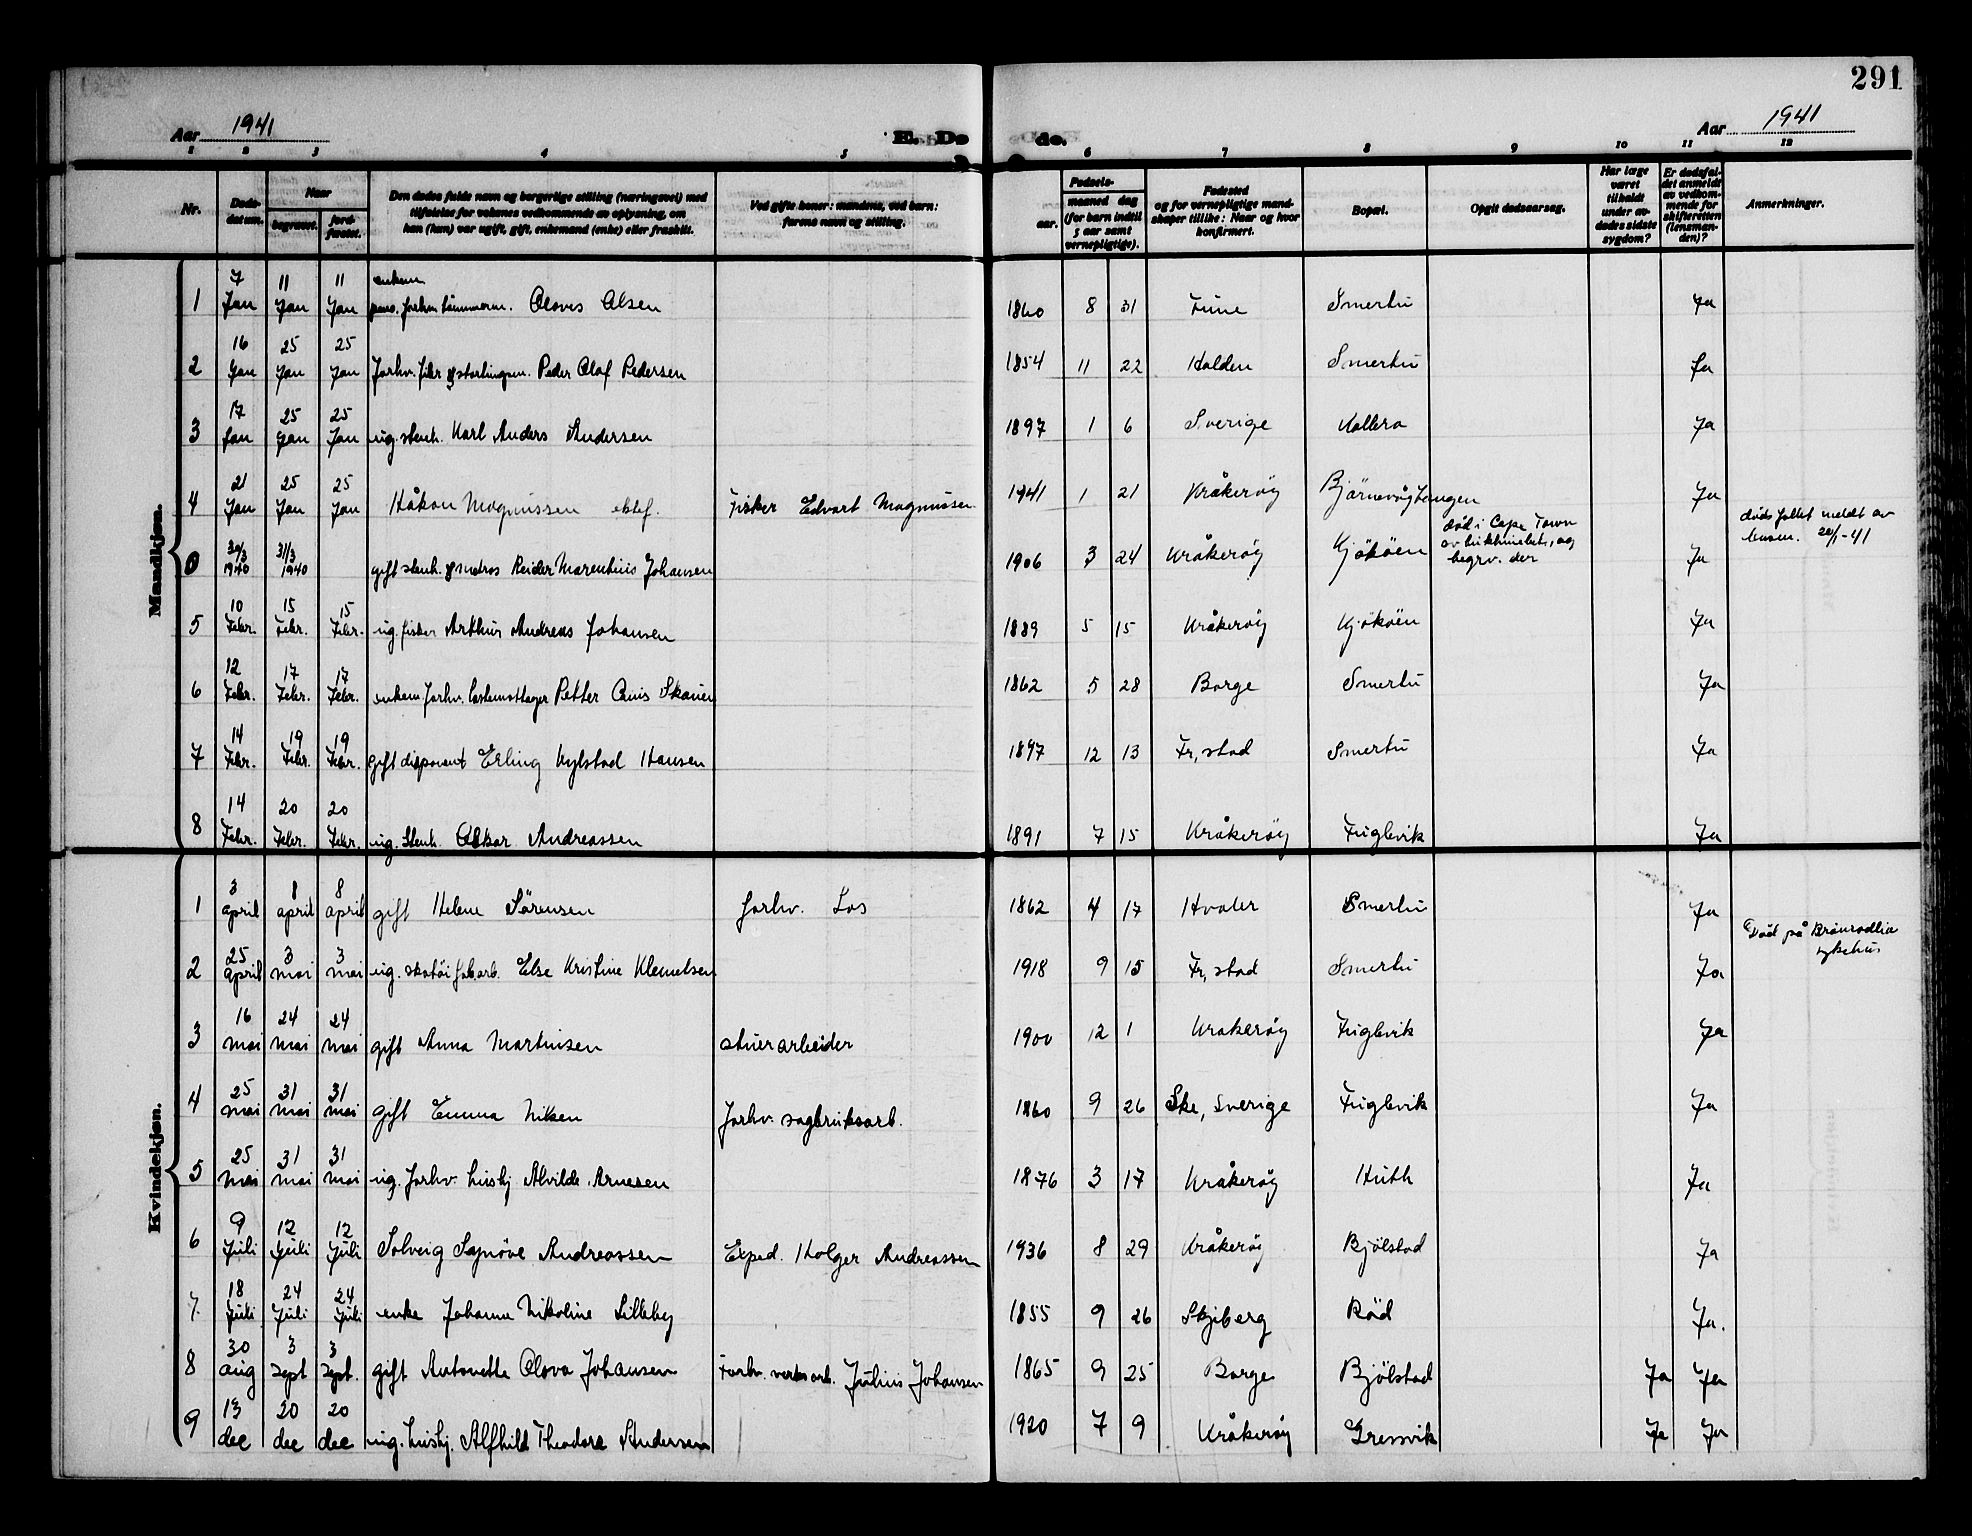 291
Aar 1941 E. Dø de. Aar 1941
1 2 3 4 5 6 7 8 9 10 11 12
Nr. Døds-datum. Naar begravet. jord-fæstet. Den dødes fulde navn og borgerlige stilling (næringsvei) med tilføielse for voksnes vedkommende av oplysning, om han (hun) var ugift, gift, enkemand (enke) eller fraskilt. Ved gifte koner: mandens, ved barn: farens navn og stilling. Fødsels- aar. maaned dag (for barn indtil 5 aar samt vernepligtige). Fødested og for vernepligtige mand-skaper tillike: Naar og hvor konfirmert. Bopæl. Opgit dødsaarsag. Har læge været tilkaldt under av-dødes sidste sygdom? Er dødsfal-det anmeldt av vedkom-mende for skifteretten (lensman-den)? Anmerkninger.
Mandkjøn.
1 7 Jan 11 Jan 11 Jan enkem. pens. forhv. tømmerm. Oloves Olsen 1860 8 31 Tune Smertu Ja
2 16 Jan 25 Jan 25 Jan forhv. filer og stortingsm. Peder Olaf Pedersen 1854 11 22 Halden Smertu Ja
3 17 Jan 25 Jan 25 Jan ug. stenh. Karl Anders Andersen 1897 1 6 Sverige Kallera Ja
4 21 Jan 25 Jan 25 Jan Håkon Magnussen ektef. Fisker Edvart Magnussen 1941 1 21 Kråkerøy Bjørnevågtangen Ja dødsfallet meldt av 20/1-41
0 30/3 1940 31/3 1940 gift stenh. og matros Reider Marentius Johansen 1906 3 24 Kråkerøy Kjøkøen død i Cape Town av og begrv. der Ja
5 10 Febr. 15 Febr. 15 Febr. ug. fisker Arthur Andreas Johansen 1889 5 15 Kråkerøy Kjøkøen Ja
6 12 Febr. 17 Febr. 17 Febr. enkem. forhv. lastemottager Petter Anis Skauen 1862 5 28 Borge Smertu Ja
7 14 Febr. 19 Febr. 19 Febr. gift disponent Erling Kylstad Hansen 1897 12 13 Fr,stad Smertu Ja
8 14 Febr. 20 Febr. 20 Febr. ug. Stenh. Oskar Andreassen 1891 7 15 Kråkerøy Fuglevik Ja
Kvindekjøn.
1 3 april 8 april 8 april gift Helene Sørensen forhv. Los 1862 4 17 Hvaler Smertu Ja
2 25 april 3 mai 3 mai ug. skotøifabarb. Else Kristine Klemetsen 1918 9 15 Fr,stad Smertu Ja Død på sykehus
3 16 mai 24 mai 24 mai gift Anna Martinsen stuerarbeider 1900 12 1 Kråkerøy Fuglevik Ja
4 25 mai 31 mai 31 mai gift Emma Nilsen Forhv. sagbruksarb. 1860 9 26 Ske, Sverige Fuglevik Ja
5 25 mai 31 mai 31 mai ug. forhv. hushj. Alvilde Arnesen 1876 3 17 Kråkerøy Huth Ja
6 9 Juli 12 Juli 12 Juli Solveig Synøve Andreassen Exped. Holger Andreassen 1936 8 29 Kråkerøy Bjølstad Ja
7 18 Juli 24 Juli 24 Juli enke Johanne Nikoline Lilleby 1855 9 26 Skjeberg Rød Ja.
8 30 aug 3 sept 3 sept. gift Antonette Olova Johansen Forhv. verksarb. Julius Johansen 1865 9 25 Borge Bjølstad Ja Ja
9 13 dec 20 dec 20 dec ug. hushj. Alfhild Theodora Andersen 1920 7 9 Kråkerøy Gressvik Ja Ja